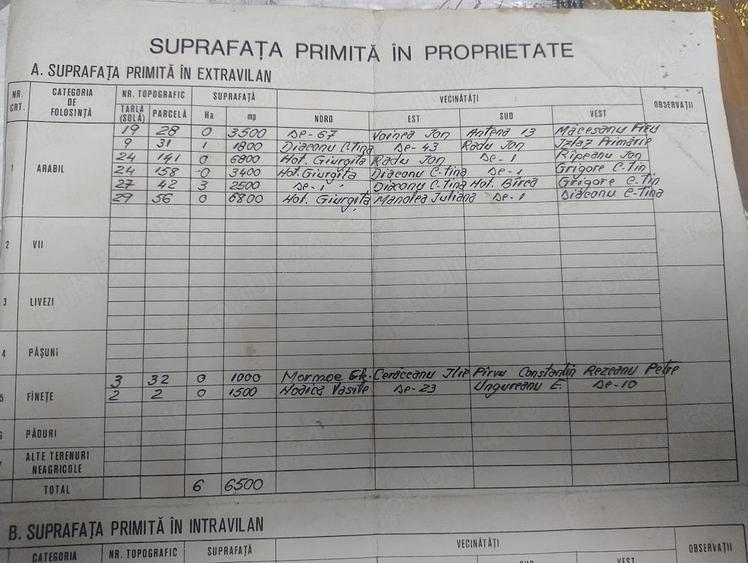 SUPRAFAȚA PRIMITĂ ÎN PROPRIETATE
A. SUPRAFAȚA PRIMITĂ ÎN EXTRAVILAN
NR. CRT. CATEGORIA DE FOLOSINȚĂ NR. TOPOGRAFIC SUPRAFAȚĂ VECINĂTĂȚI OBSERVAȚII
TARLA (SOLĂ) PARCELĂ Ha mp NORD EST SUD VEST
19 28 0 3500 De-67 Voinea Ion Antena 13 Măceșanu
9 31 1 1800 Diaconu C-tina De-43 Radu Ion Izlaz Primărie
1 ARABIL 24 141 0 6800 Hot. Giurgița Radu Ion De-1 Rîpeanu Ion
24 158 0 3400 Hot. Giurgița Diaconu C-tina De-1 Grigore C-tin
27 42 3 2500 De-1 Diaconu C-tina Hot. Bîrca Grigore C-tin
29 56 0 6800 Hot. Giurgița Manolea Juliana De-1 Diaconu C-tina
2 VII
3 LIVEZI
4 PĂȘUNI
3 32 0 1000 Mormoe Gh. Cerăceanu Ilie Pîrvu Constantin Rezeanu Petre
5 FÎNEȚE 2 2 0 1500 Nodica Vasile De-23 Ungureanu E. De-10
6 PĂDURI
ALTE TERENURI NEAGRICOLE
TOTAL 6 6500
B. SUPRAFAȚA PRIMITĂ ÎN INTRAVILAN
CATEGORIA NR. TOPOGRAFIC SUPRAFAȚĂ VECINĂTĂȚI OBSERVAȚII
SUD VEST